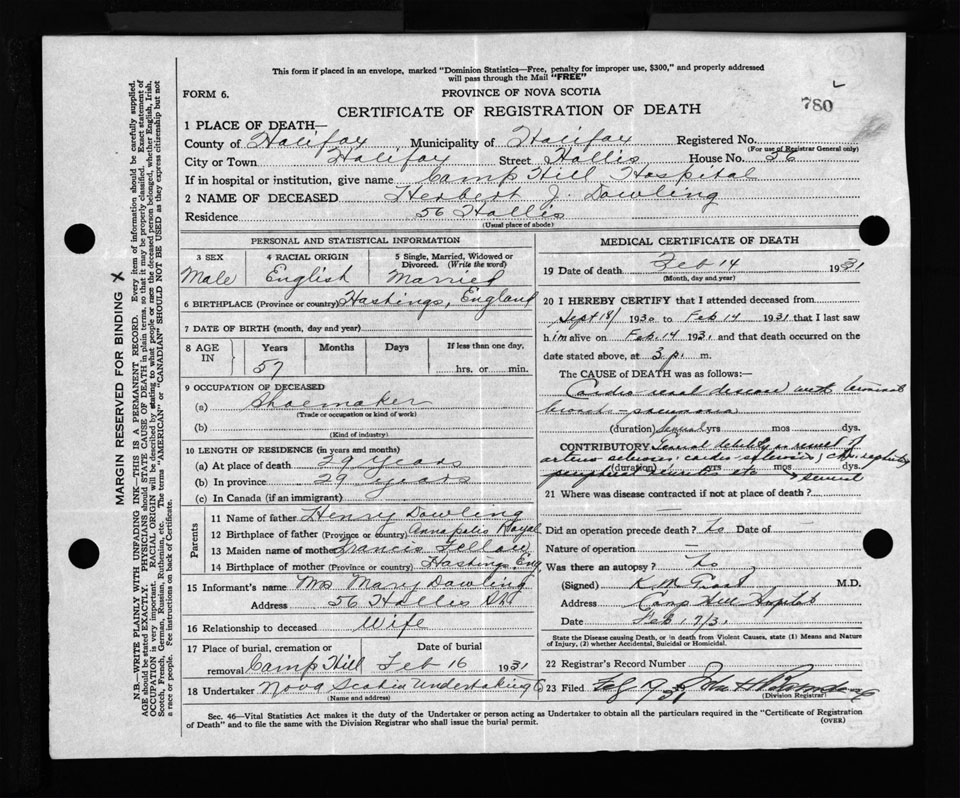 This form if placed in an envelope, marked "Dominion Statistics—Free, penalty for improper use, $300," and properly addressed
will pass through the Mail "FREE"
FORM 6.
PROVINCE OF NOVA SCOTIA
780
CERTIFICATE OF REGISTRATION OF DEATH
1 PLACE OF DEATH—
County of Halifax Municipality of Halifax Registered No.
(For use of Registrar General only)
City or Town Halifax Street Hollis House No. 56
If in hospital or institution, give name Camp Hill Hospital
2 NAME OF DECEASED Herbert J. Dowling
Residence 56 Hollis
(Usual place of abode)
PERSONAL AND STATISTICAL INFORMATION
3 SEX 4 RACIAL ORIGIN 5 Single, Married, Widowed or
Divorced. (Write the word)
Male English Married
6 BIRTHPLACE (Province or country) Hastings, England
7 DATE OF BIRTH (month, day and year)
8 AGE IN Years Months Days If less than one day,
57 hrs. or min.
9 OCCUPATION OF DECEASED
(a) Shoemaker
(Trade or occupation or kind of work)
(b)
(Kind of industry)
10 LENGTH OF RESIDENCE (in years and months)
(a) At place of death 29 years
(b) In province 29 years
(c) In Canada (if an immigrant)
Parents
11 Name of father Henry Dowling
12 Birthplace of father (Province or country) Annapolis Royal
13 Maiden name of mother Francis
14 Birthplace of mother (Province or country) Hastings Eng
15 Informant's name Mrs Mary Dowling
Address 56 Hollis St
16 Relationship to deceased Wife
17 Place of burial, cremation or Date of burial
removal Camp Hill Feb 16 1931
18 Undertaker Nova Scotia Undertaking Co
(Name and address)
MEDICAL CERTIFICATE OF DEATH
19 Date of death Feb 14 1931
(Month, day and year)
20 I HEREBY CERTIFY that I attended deceased from
Sept 18/ 1930 to Feb 14 1931 that I last saw
him alive on Feb. 14 1931 and that death occurred on the
date stated above, at 3 p. m.
The CAUSE of DEATH was as follows:—
Cardio renal disease with terminal
broncho-pneumonia
(duration) several yrs mos dys.
CONTRIBUTORY debility as result of
arterio sclerosis, cardio sclerosis,
(duration) yrs mos dys.
peripheral neuritis etc several
21 Where was disease contracted if not at place of death?
Did an operation precede death? No Date of —
Nature of operation —
Was there an autopsy? No
(Signed) K M Grant M.D.
Address Camp Hill Hospital
Date Feb 17/31
State the Disease causing Death, or in death from Violent Causes, state (1) Means and Nature
of Injury, (2) whether Accidental, Suicidal or Homicidal.
22 Registrar's Record Number
23 Filed 19 31 John H
(Division Registrar)
Sec. 46—Vital Statistics Act makes it the duty of the Undertaker or person acting as Undertaker to obtain all the particulars required in the "Certificate of Registration
of Death" and to file the same with the Division Registrar who shall issue the burial permit.
(OVER)
MARGIN RESERVED FOR BINDING X
N.B.—WRITE PLAINLY WITH UNFADING INK—THIS IS A PERMANENT RECORD. Every item of information should be carefully supplied.
AGE should be stated EXACTLY. PHYSICIANS should STATE CAUSE OF DEATH in plain terms, so that it may be properly classified. Exact statement of
OCCUPATION is very important. RACIAL ORIGIN will be described by stating to what people or race the deceased person belonged, whether English, Irish,
Scotch, French, German, Russian, Ruthenian, etc. The terms "AMERICAN" or "CANADIAN" SHOULD NOT BE USED as they express citizenship but not
a race or people. See instructions on back of Certificate.